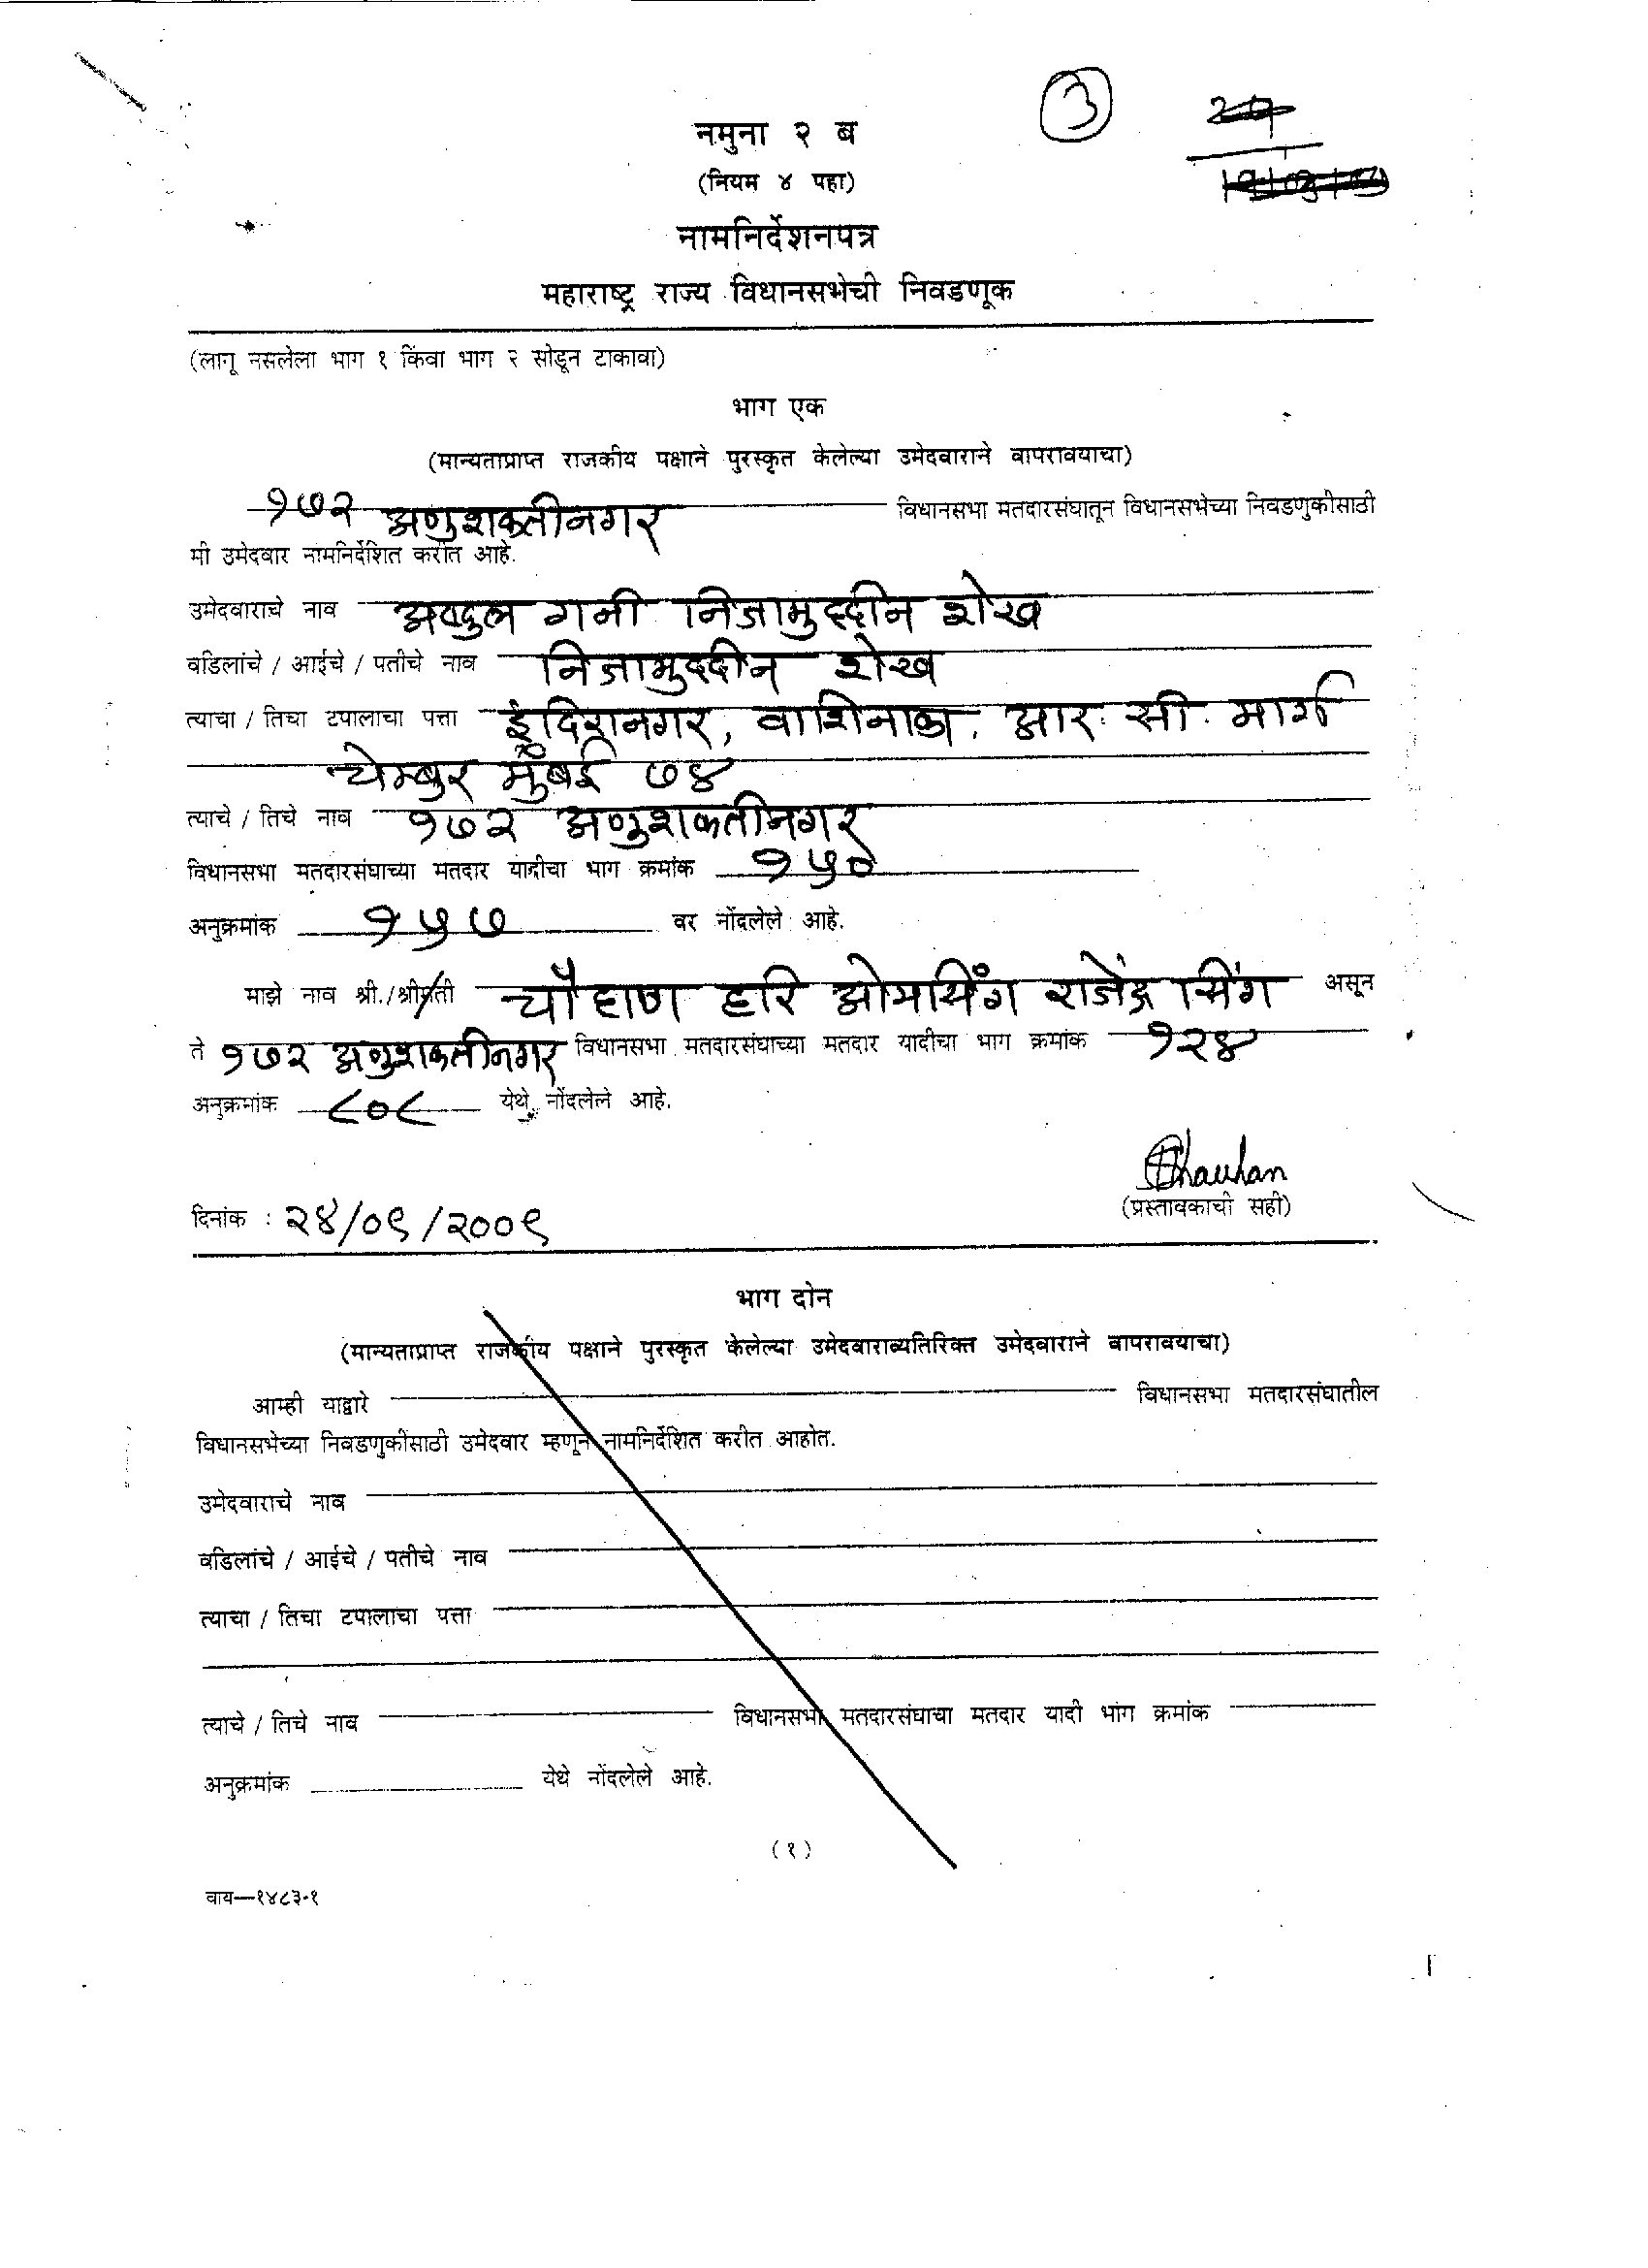 ३
नमुना २ ब
(नियम ४ पहा)
नामनिर्देशनपत्र
महाराष्ट्र राज्य विधानसभेची निवडणूक
(लागू नसलेला भाग १ किंवा भाग २ सोडून टाकावा)
भाग एक
(मान्यताप्राप्त राजकीय पक्षाने पुरस्कृत केलेल्या उमेदवाराने वापरावयाचा)
१७२ अणुशक्तीनगर विधानसभा मतदारसंघातून विधानसभेच्या निवडणुकीसाठी
मी उमेदवार नामनिर्देशित करीत आहे.
उमेदवाराचे नाव अब्दुल गनी निजामुद्दीन शेख
वडिलांचे / आईचे / पतीचे नाव निजामुद्दीन शेख
त्याचा / तिचा टपालाचा पत्ता इंदिरानगर, वाशिनाका, आर. सी. मार्ग
चेम्बुर मुंबई ७४
त्याचे / तिचे नाव १७२ अणुशक्तीनगर
विधानसभा मतदारसंघाच्या मतदार यादीचा भाग क्रमांक १५०
अनुक्रमांक १५७ वर नोंदलेले आहे.
माझे नाव श्री./श्रीमती चौहाण हरि ओमसिंग राजेंद्र सिंग असून
ते १७२ अणुशक्तीनगर विधानसभा मतदारसंघाच्या मतदार यादीचा भाग क्रमांक १२४
अनुक्रमांक ८०८ येथे नोंदलेले आहे.
Chauhan
(प्रस्तावकाची सही)
दिनांक : २४/०९/२००९
भाग दोन
(मान्यताप्राप्त राजकीय पक्षाने पुरस्कृत केलेल्या उमेदवाराव्यतिरिक्त उमेदवाराने वापरावयाचा)
आम्ही याद्वारे विधानसभा मतदारसंघातील
विधानसभेच्या निवडणुकीसाठी उमेदवार म्हणून नामनिर्देशित करीत आहोत.
उमेदवाराचे नाव
वडिलांचे / आईचे / पतीचे नाव
त्याचा / तिचा टपालाचा पत्ता
त्याचे / तिचे नाव विधानसभा मतदारसंघाचा मतदार यादी भाग क्रमांक
अनुक्रमांक येथे नोंदलेले आहे.
(१)
वाय—१४८३-१